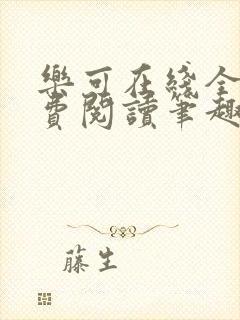 樂可在綫全
費閱讀筆趣
藤生